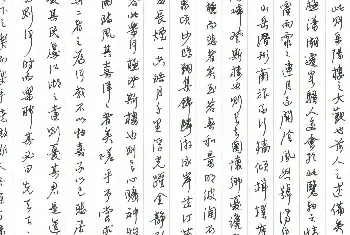 此則岳陽樓之大觀也前人之述備矣
極瀟湘遷客騷人多會於此覽物之情
霏霏連月不開陰風怒號濁浪
山岳潛形商旅不行檣傾楫摧薄
啼登斯樓也則有去國懷鄉憂讒
極而悲者矣至若春和景明波瀾不
萬頃沙鷗翔集錦鱗游泳岸芷汀
長煙一空皓月千里浮光躍金靜影
此樂何極登斯樓也則有心曠神怡
臨風其喜洋洋者矣嗟夫予嘗求
者之為何哉不以物喜不以己悲居
憂其民處江湖之遠則憂其君是進
則何時而樂耶其必曰先天下
下之樂而樂乎